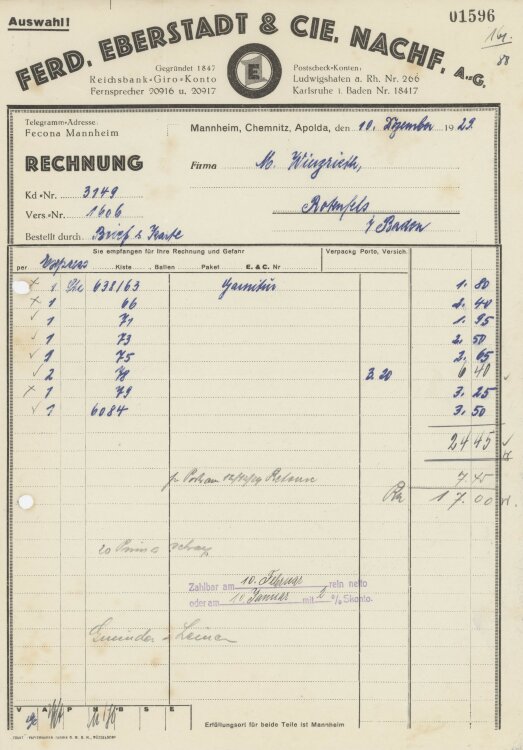 Auswahl!
01596
FERD. EBERSTADT & CIE. NACHF. A.-G.
Gegründet 1847
Reichsbank-Giro-Konto
Fernsprecher 20916 u. 20917
E
Postscheck-Konten:
Ludwigshafen a. Rh. Nr. 266
Karlsruhe i. Baden Nr. 18417
Telegramm-Adresse:
Fecona Mannheim
Mannheim, Chemnitz, Apolda, den 10. Dezember 1929.
RECHNUNG
Firma M.
Kd.-Nr. 3149
Vers-Nr. 1606
Rotenfels
Bestellt durch Brief & Karte
i/ Baden
Sie empfangen für Ihre Rechnung und Gefahr
Verpackg Porto, Versich.
per Kiste, Ballen, Paket E. & C. Nr
1 638/63 Garnitur 1. 80
1 66 2. 40
1 71 1. 95
1 73 2. 50
1 75 2. 65
2 78 3.20 6 40
1 79 3. 25
1 6084 3. 50
24 45
7. 45
17.00
Zahlbar am 10. Februar rein netto
oder am 10 Januar mit 2 % Skonto.
V A P N B S E
Erfüllungsort für beide Teile ist Mannheim